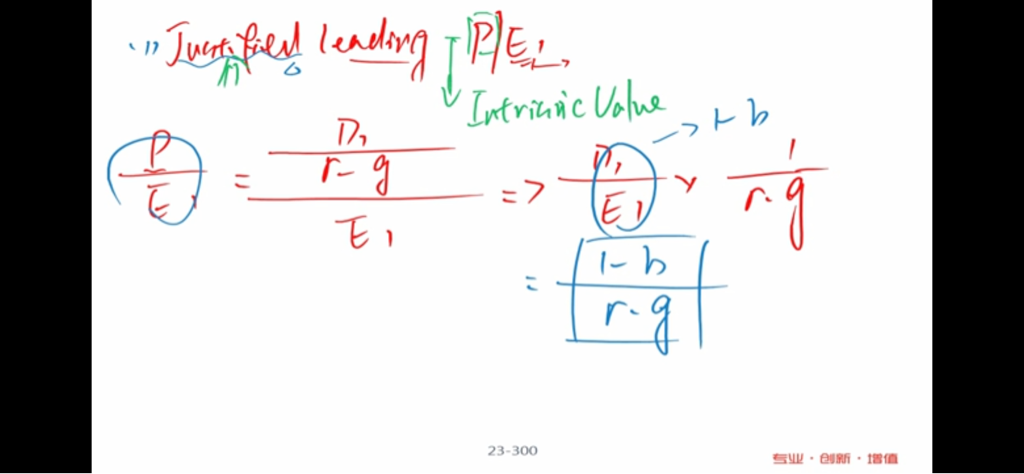 (1) Justified leading P/E1
Intrinsic Value
P/E1 = (D1/(r-g))/E1 => D1/E1 × 1/(r-g)
1-b
= (1-b)/(r-g)
23-300
专业·创新·增值